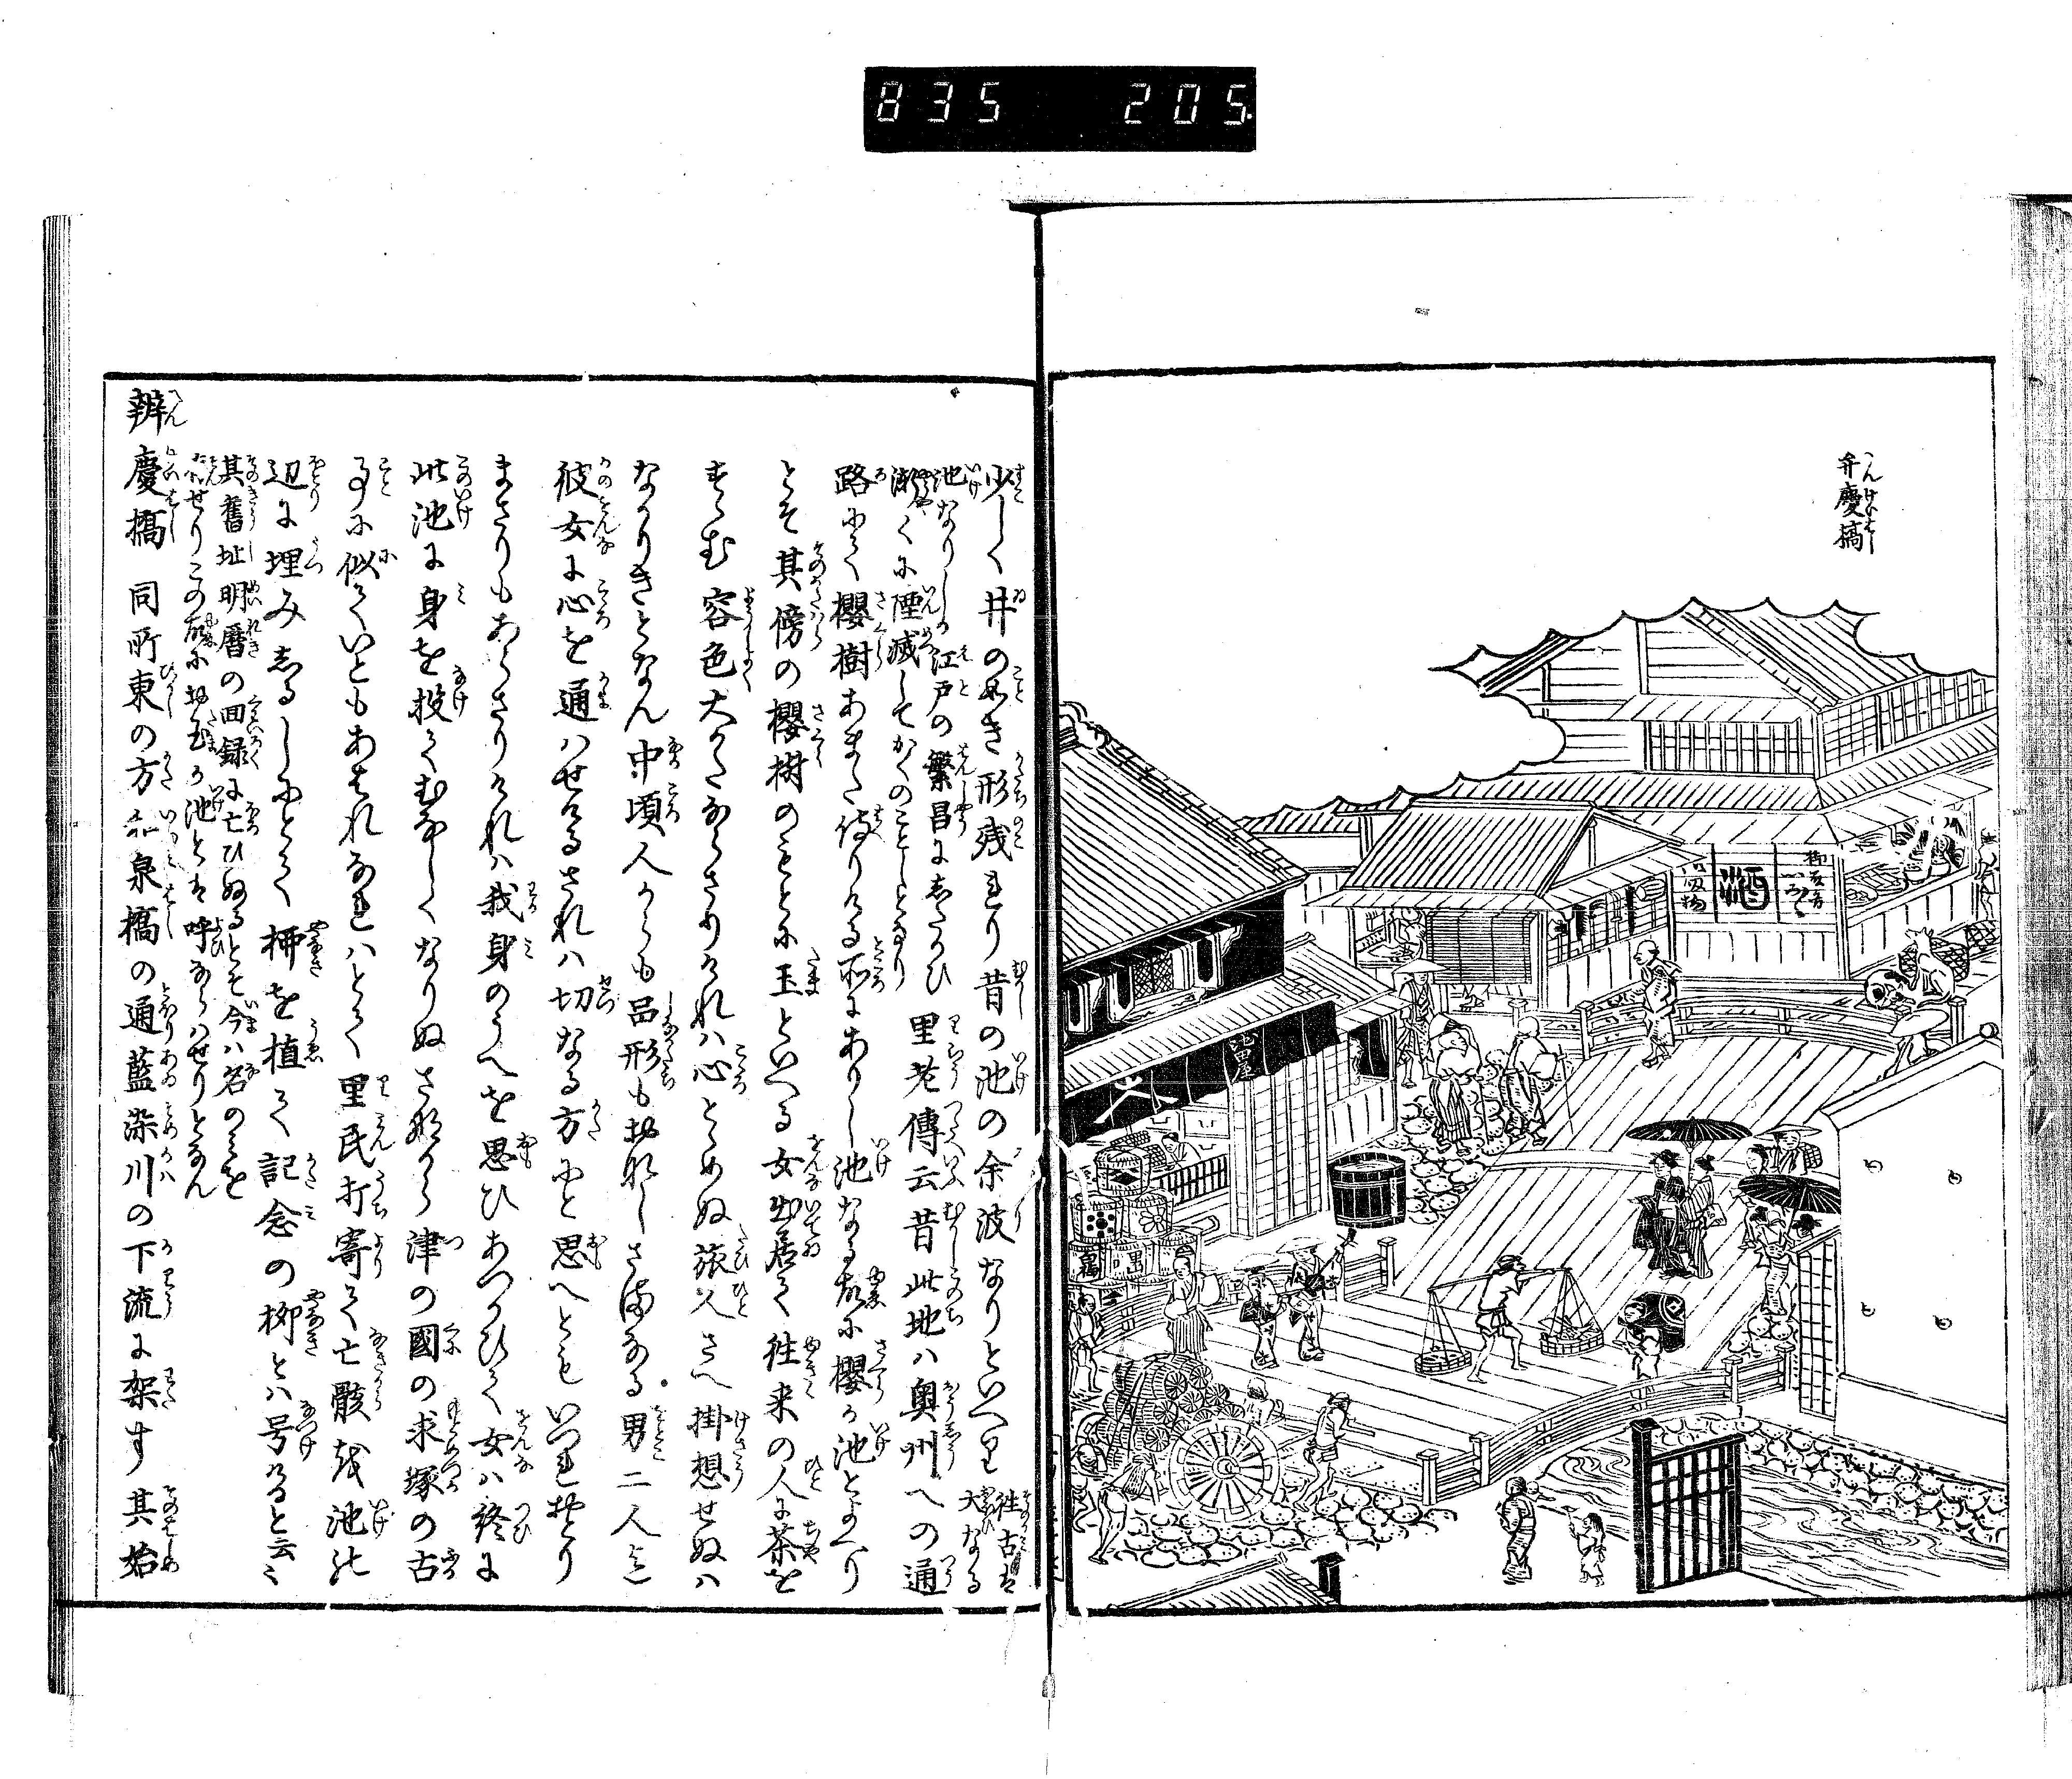 835 205.
弁慶橋
へんけいはし
柳
酒
吸物
池田屋
少しく井の如き形残れり昔の池の余波なりといへり
往古は大なる
池なりしか江戸の繁昌にしたかひ
漸くに堙滅してかくのことしとなり
里老傳云昔此地ハ奥州への通
路にして櫻樹あまた侍りける所にありし池なる故に櫻か池とよへり
とそ其傍の櫻樹のもとに玉といへる女出居て往来の人に茶を
すゝむ容色大かたならさりけれハ心とゝめぬ旅人さへ掛想せぬハ
なかりきとなん中頃人からも品形もおなしさまなる男二人まて
彼女に心を通ハせけるされハ切なる方にと思へともいつれおとり
まさりもあらさりけれハ我身のうへを思ひあつかひて女ハ終に
此池に身を投てむなしくなりぬさなから津の國の求塚の古
事に似ていともあはれなれハとて里民打寄て亡骸を池の
辺に埋みしるしにとて柳を植て記念の柳とハ号けると云々
其舊址明暦の回録に亡ひぬるとそ今ハ名のミを
存せりこの故にお玉か池とは呼ならハせりとなん
辨慶橋　同所東の方和泉橋の通藍染川の下流に架す其始